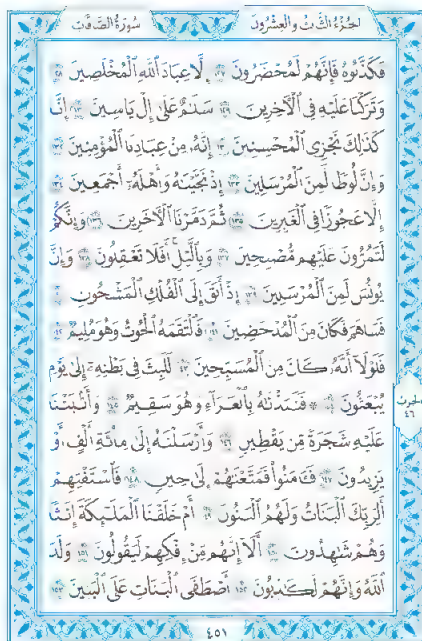 الجزء الثالث والعشرون
سورة الصافات
فَكَذَّبُوهُ فَإِنَّهُمْ لَمُحْضَرُونَ ١٢٧ إِلَّا عِبَادَ ٱللَّهِ ٱلْمُخْلَصِينَ ١٢٨
وَتَرَكْنَا عَلَيْهِ فِى ٱلْءَاخِرِينَ ١٢٩ سَلَٰمٌ عَلَىٰٓ إِلْ يَاسِينَ ١٣٠ إِنَّا
كَذَٰلِكَ نَجْزِى ٱلْمُحْسِنِينَ ١٣١ إِنَّهُۥ مِنْ عِبَادِنَا ٱلْمُؤْمِنِينَ ١٣٢
وَإِنَّ لُوطًا لَّمِنَ ٱلْمُرْسَلِينَ ١٣٣ إِذْ نَجَّيْنَٰهُ وَأَهْلَهُۥٓ أَجْمَعِينَ ١٣٤
إِلَّا عَجُوزًا فِى ٱلْغَٰبِرِينَ ١٣٥ ثُمَّ دَمَّرْنَا ٱلْءَاخَرِينَ ١٣٦ وَإِنَّكُمْ
لَتَمُرُّونَ عَلَيْهِم مُّصْبِحِينَ ١٣٧ وَبِٱلَّيْلِ ۗ أَفَلَا تَعْقِلُونَ ١٣٨ وَإِنَّ
يُونُسَ لَمِنَ ٱلْمُرْسَلِينَ ١٣٩ إِذْ أَبَقَ إِلَى ٱلْفُلْكِ ٱلْمَشْحُونِ ١٤٠
فَسَاهَمَ فَكَانَ مِنَ ٱلْمُدْحَضِينَ ١٤١ فَٱلْتَقَمَهُ ٱلْحُوتُ وَهُوَ مُلِيمٌ ١٤٢
فَلَوْلَآ أَنَّهُۥ كَانَ مِنَ ٱلْمُسَبِّحِينَ ١٤٣ لَلَبِثَ فِى بَطْنِهِۦٓ إِلَىٰ يَوْمِ
يُبْعَثُونَ ١٤٤ ۞ فَنَبَذْنَٰهُ بِٱلْعَرَآءِ وَهُوَ سَقِيمٌ ١٤٥ وَأَنۢبَتْنَا
الحزب
٤٦
عَلَيْهِ شَجَرَةً مِّن يَقْطِينٍ ١٤٦ وَأَرْسَلْنَٰهُ إِلَىٰ مِا۟ئَةِ أَلْفٍ أَوْ
يَزِيدُونَ ١٤٧ فَـَٔامَنُوا۟ فَمَتَّعْنَٰهُمْ إِلَىٰ حِينٍ ١٤٨ فَٱسْتَفْتِهِمْ
أَلِرَبِّكَ ٱلْبَنَاتُ وَلَهُمُ ٱلْبَنُونَ ١٤٩ أَمْ خَلَقْنَا ٱلْمَلَٰٓئِكَةَ إِنَٰثًا
وَهُمْ شَٰهِدُونَ ١٥٠ أَلَآ إِنَّهُم مِّنْ إِفْكِهِمْ لَيَقُولُونَ ١٥١ وَلَدَ
ٱللَّهُ وَإِنَّهُمْ لَكَٰذِبُونَ ١٥٢ أَصْطَفَى ٱلْبَنَاتِ عَلَى ٱلْبَنِينَ ١٥٣
٤٥١